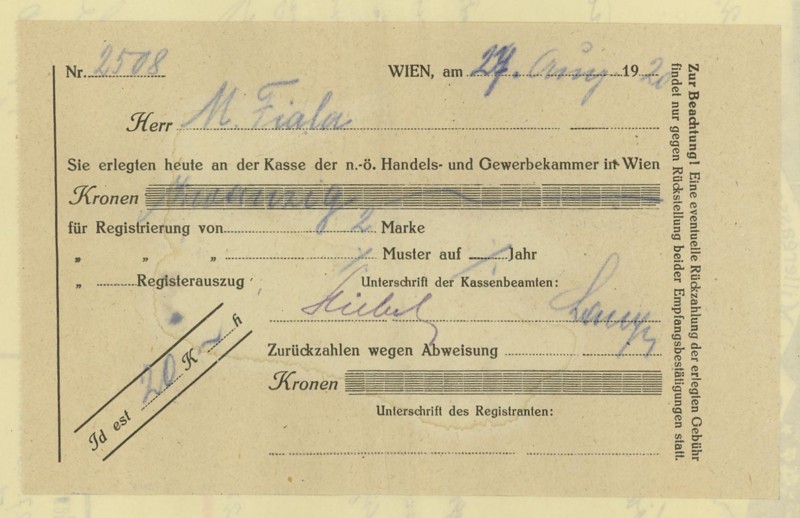 Nr. 2508 WIEN, am 27. Aug 1920
Herr M. Fiala
Sie erlegten heute an der Kasse der n.-ö. Handels- und Gewerbekammer in Wien
Kronen zwanzig
für Registrierung von 2 Marke
„ „ „ Muster auf Jahr
„ Registerauszug
Unterschrift der Kassenbeamten:
Id est 20 K — h
Zurückzahlen wegen Abweisung
Kronen
Unterschrift des Registranten:
Zur Beachtung! Eine eventuelle Rückzahlung der erlegten Gebühr
findet nur gegen Rückstellung beider Empfangsbestätigungen statt.